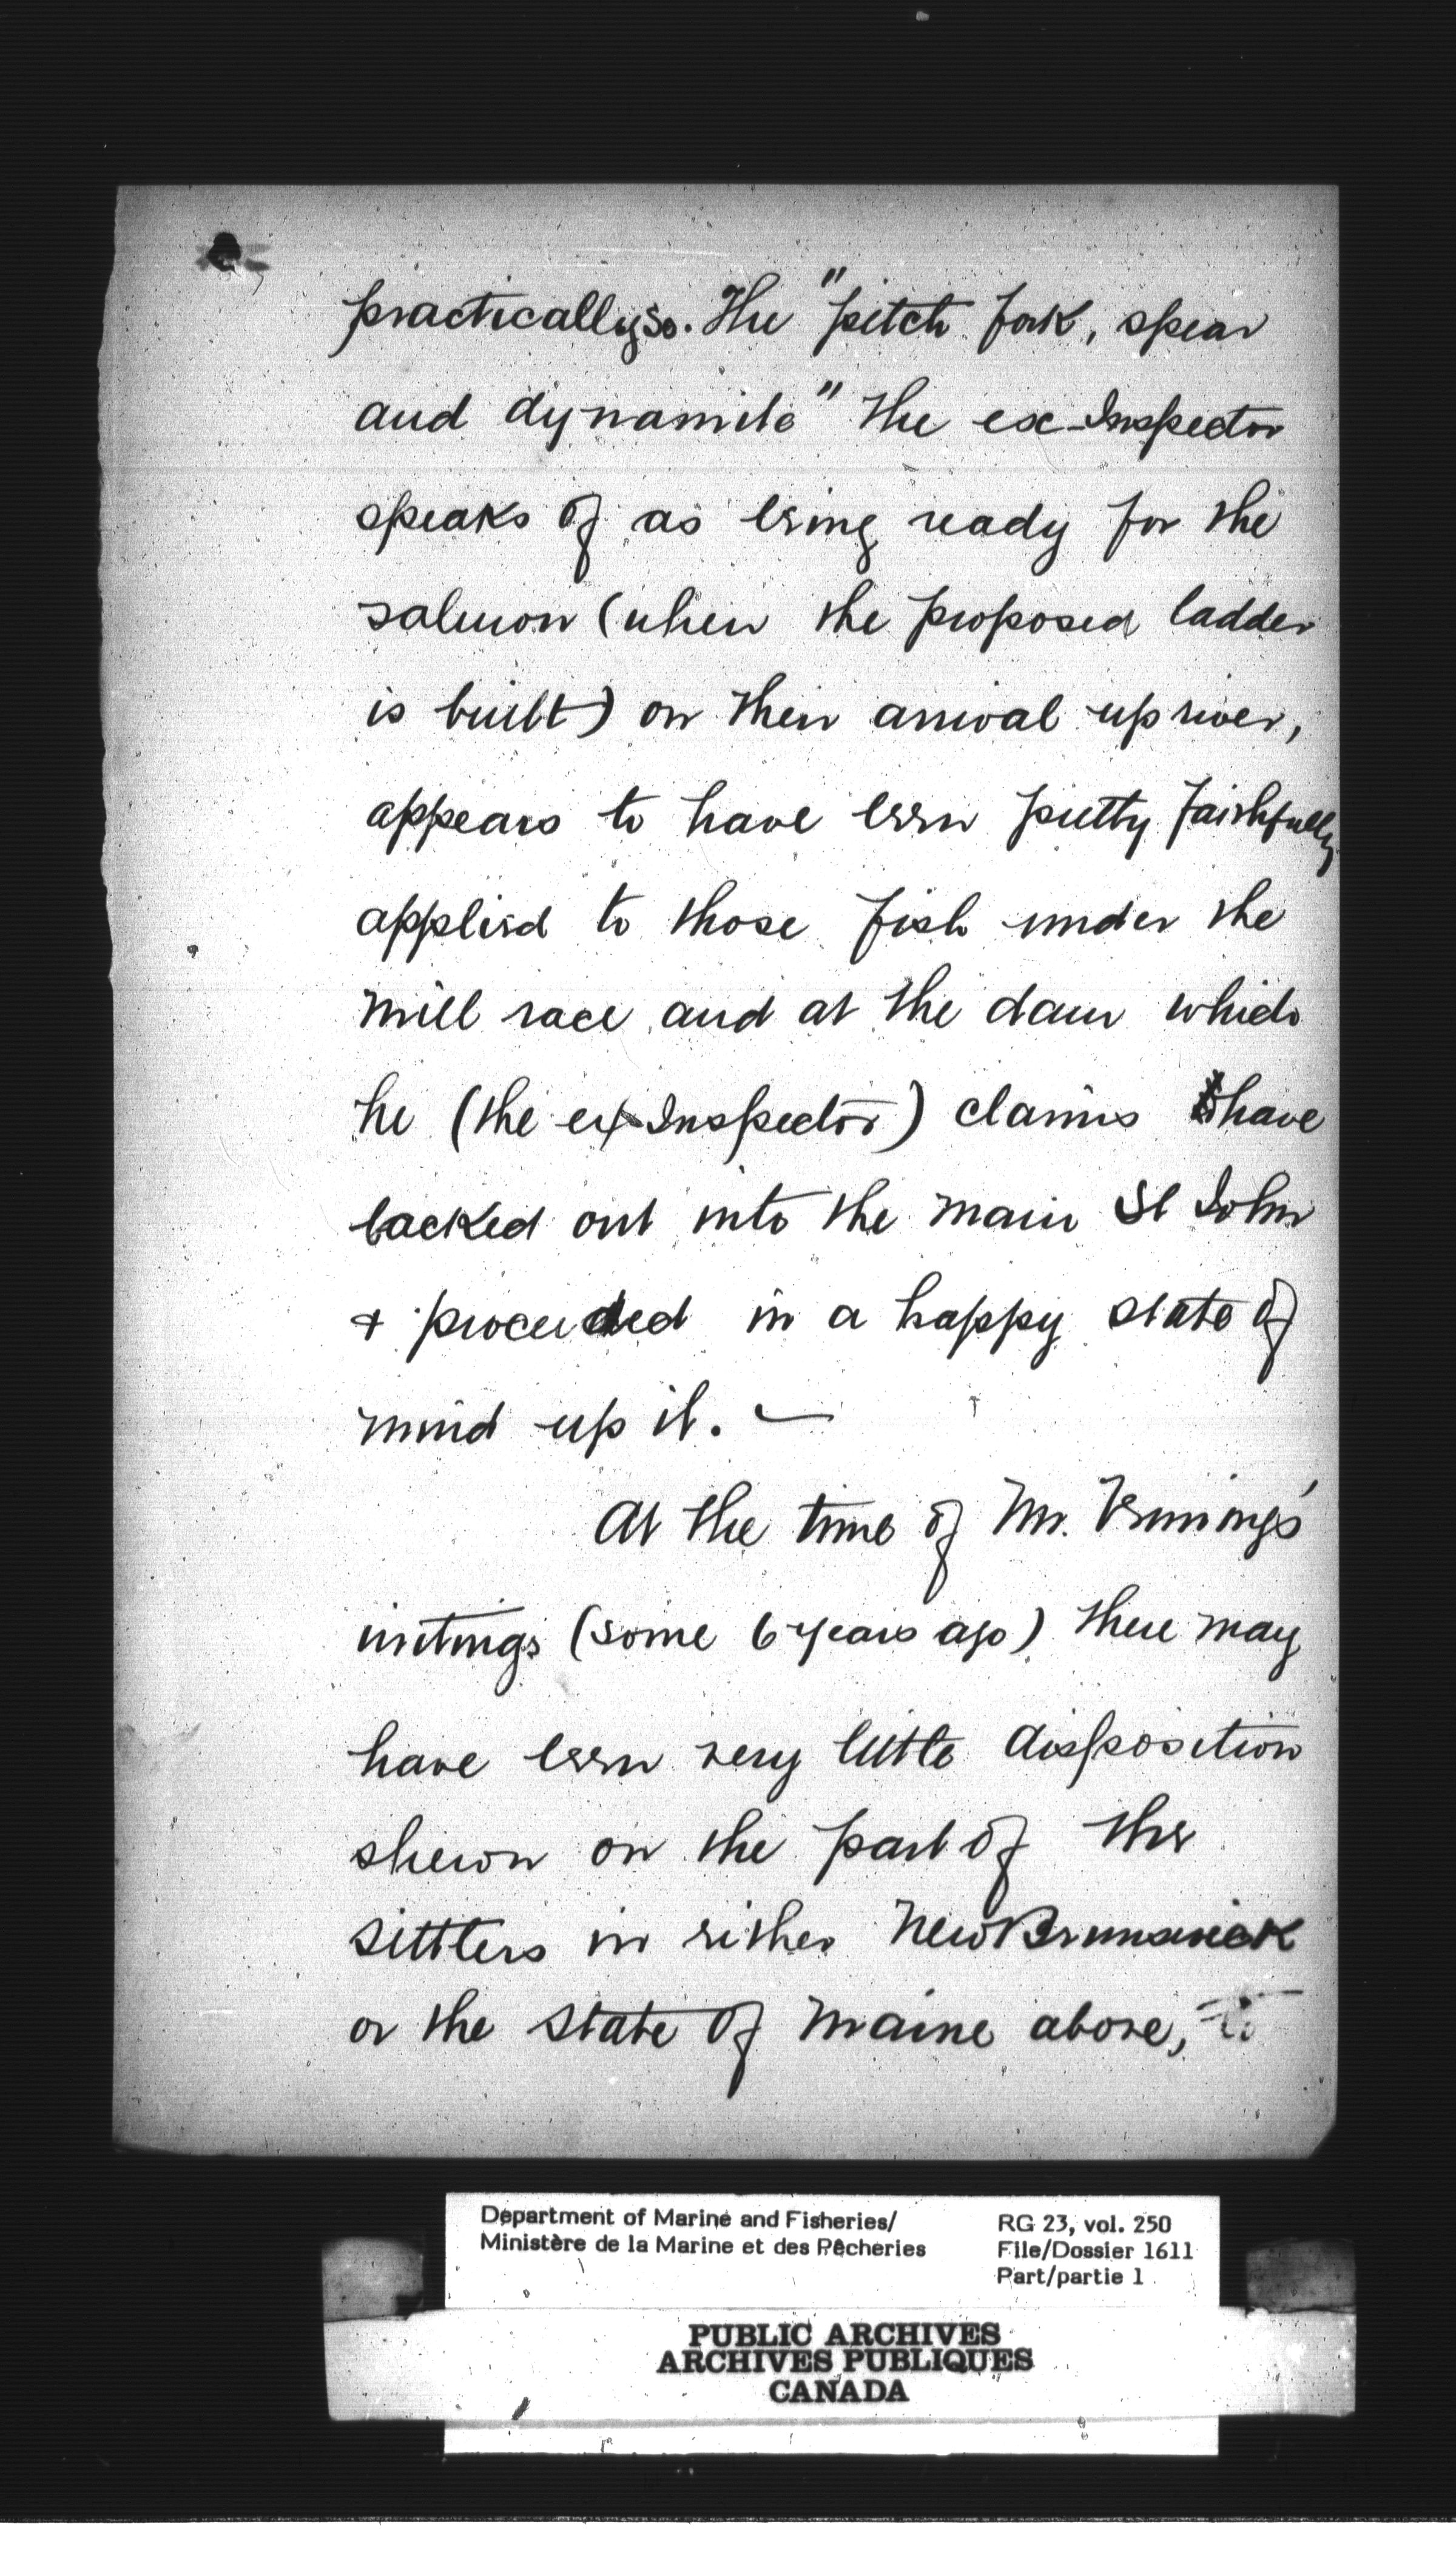 practically so. The "pitch fork, spear
and dynamite" the ex-Inspector
speaks of as being ready for the
salmon (when the proposed ladder
is built) on their arrival up river,
appears to have been pretty faithfully
applied to those fish under the
mill race and at the dam which
he (the ex-Inspector) claims have
backed out into the main St John
+ proceeded in a happy state of
mind up it. —
At the time of Mr. Venning's
writings (some 6 years ago) there may
have been very little disposition
shewn on the part of the
settlers in either New Brunswick
or the State of Maine above, to
Department of Marine and Fisheries/
Ministère de la Marine et des Pêcheries
RG 23, vol. 250
File/Dossier 1611
Part/partie 1
PUBLIC ARCHIVES
ARCHIVES PUBLIQUES
CANADA